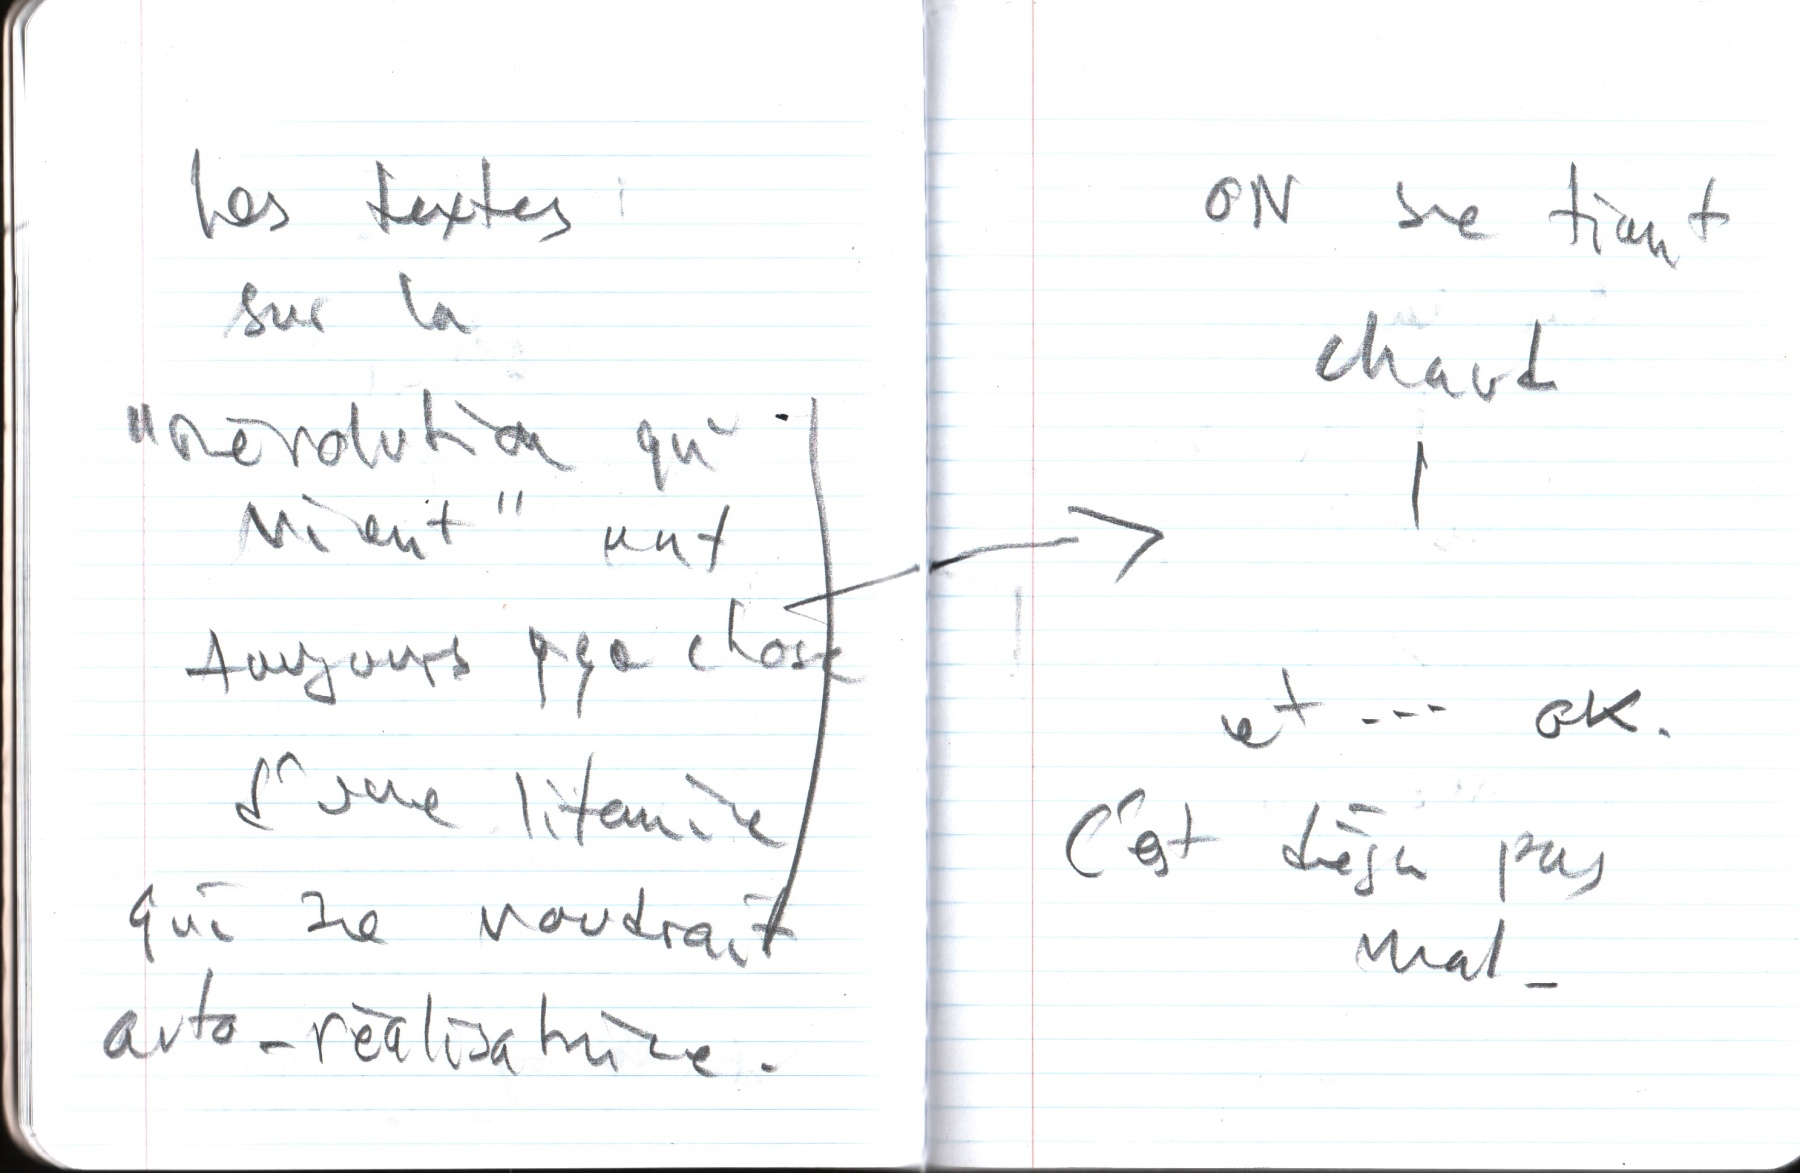 Les textes
sur la
"Révolution qui
vient" ont
toujours qqe chose
d'une litanie
qui se voudrait
auto-réalisatrice.
ON se tient
chaud
et --- ok.
C'est déjà pas
mal_